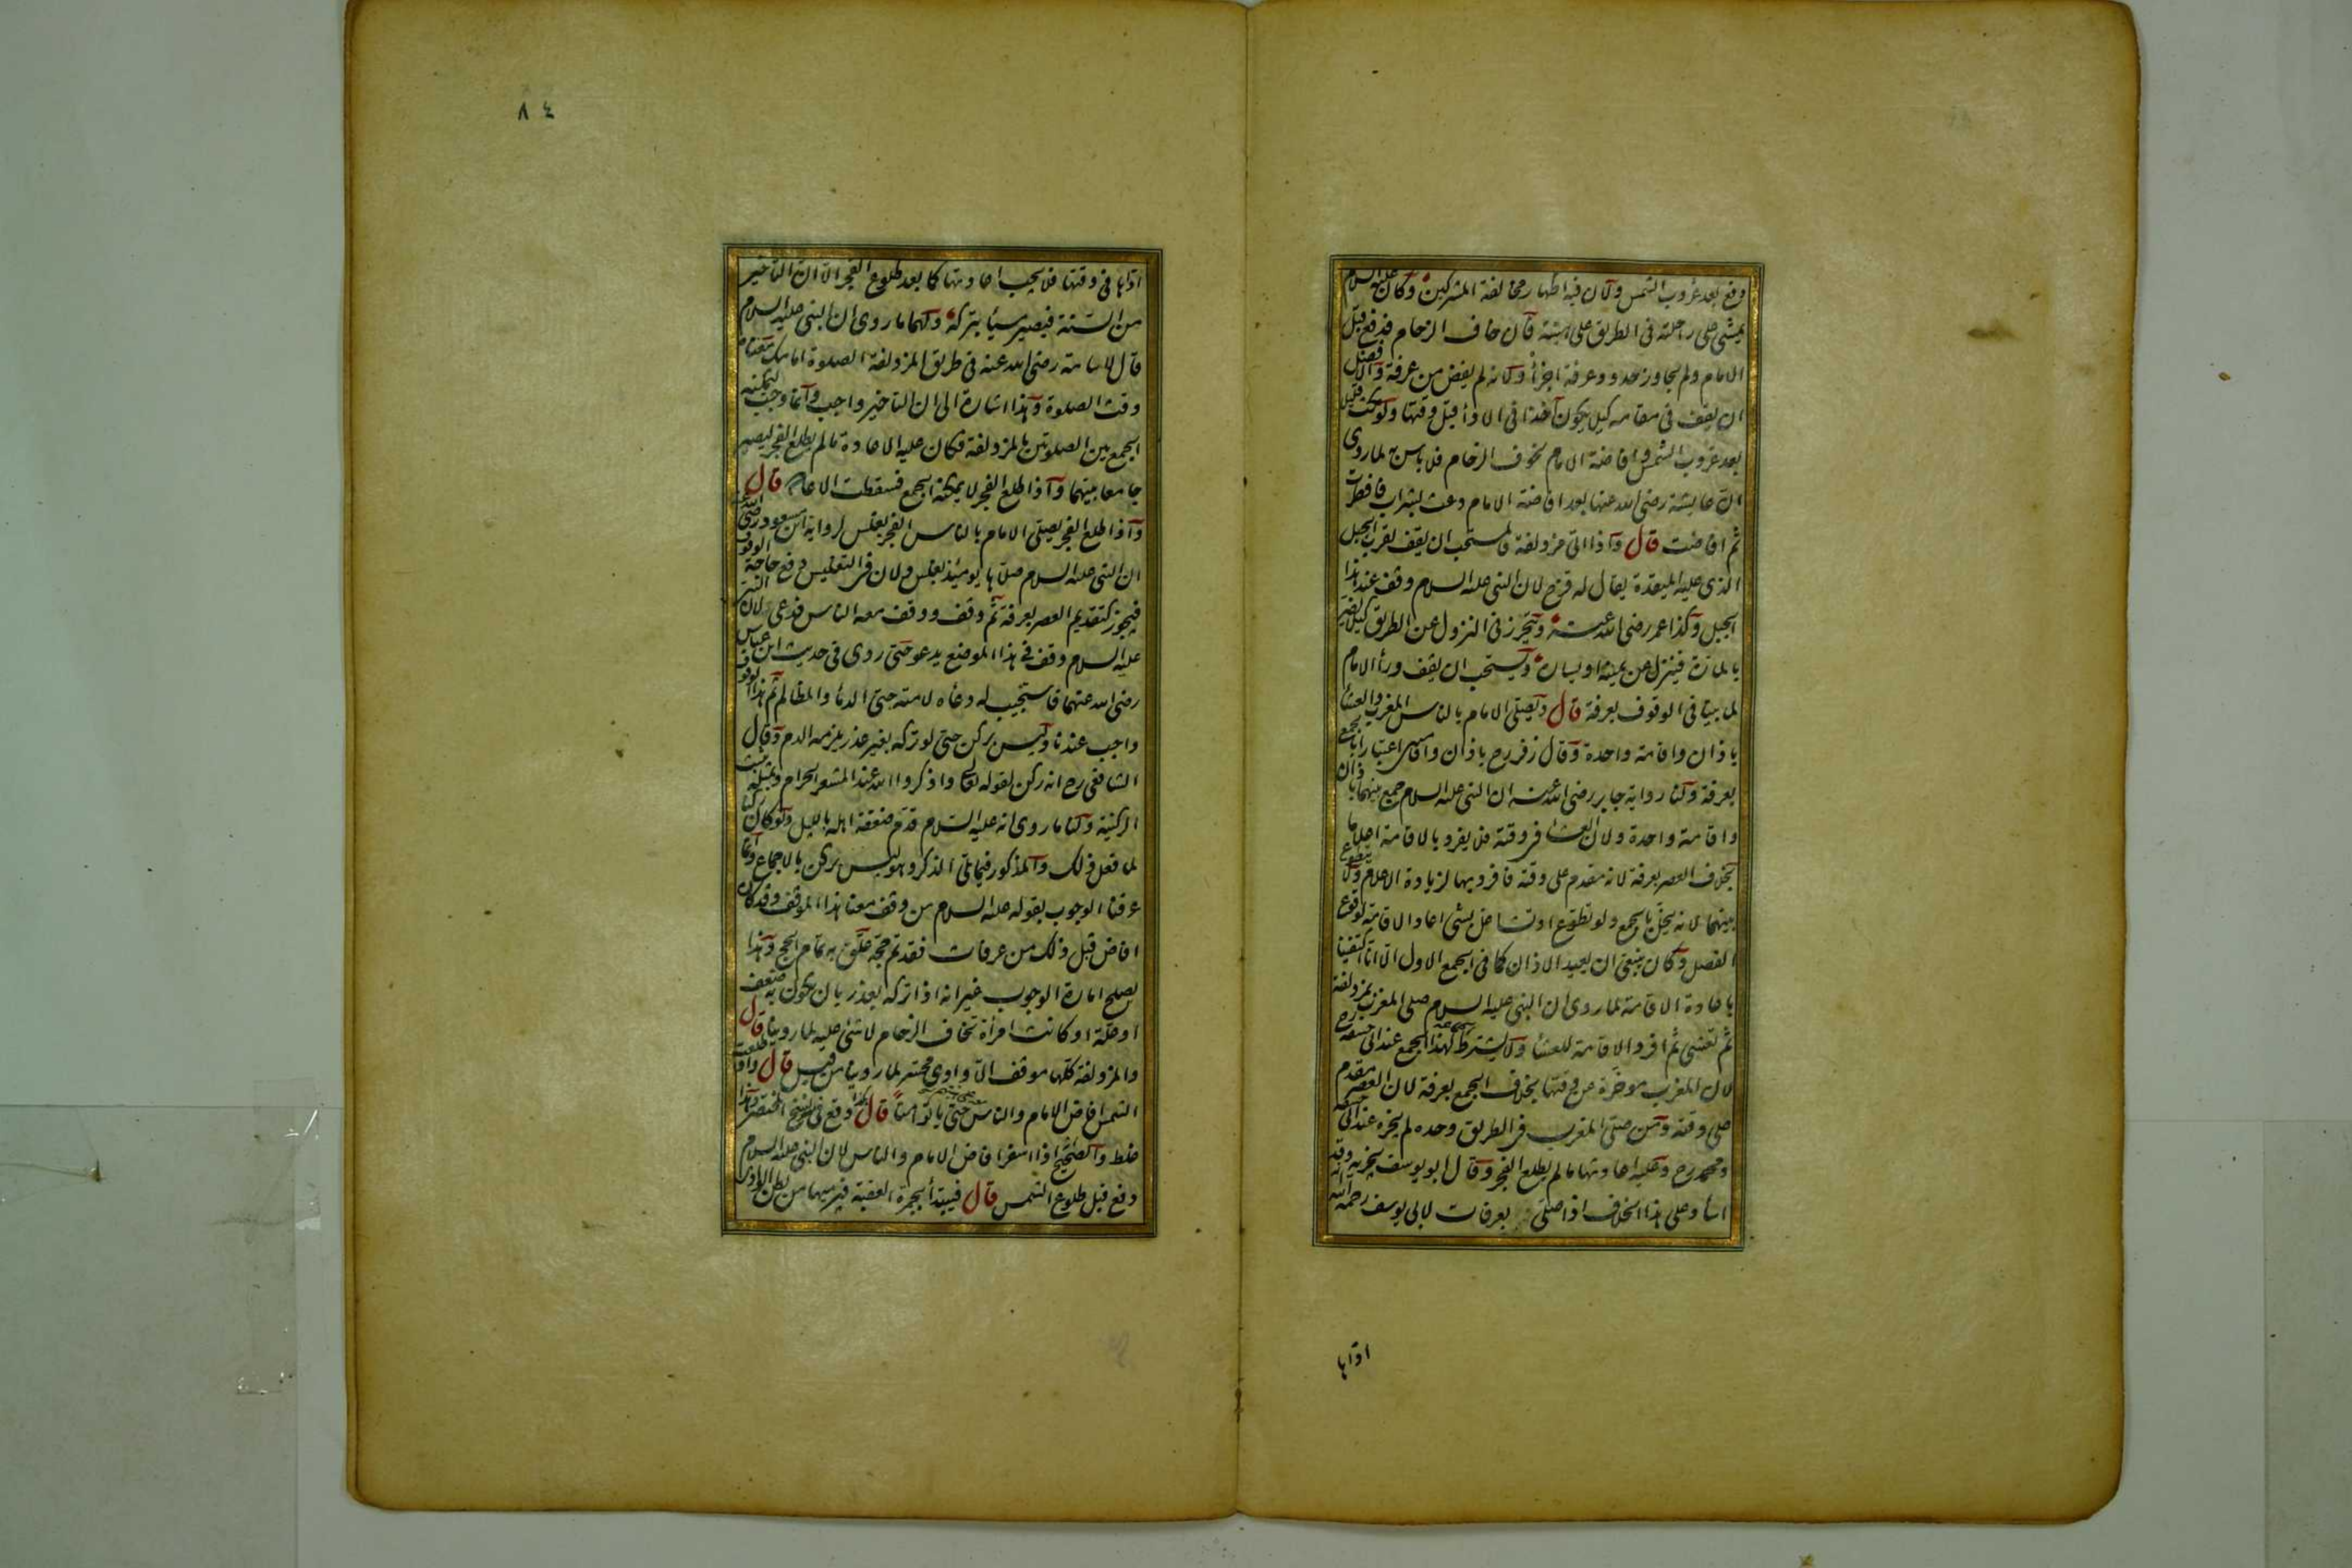 دفع بعد غروب الشمس ولان فيه اظهار مخالفة المشركين وكان عليه السلام
يمشي على راحلته في الطريق على هينته قال خاف الزحام فدفع قبل
الامام ولم يجاوز حدود عرفة اجزأه لانه لم يفض من عرفة والافضل
ان يقف في مقامه كيلا يكون آخذا في الاداء قبل وقتها ولو مكث قليلا
بعد غروب الشمس وافاضة الامام لخوف الزحام فلا باس به لما روى
ان عايشة رضى الله عنها بعد افاضة الامام دعت بشراب فافطرت
ثم افاضت قال واذا اتى مزدلفة فالمستحب ان يقف بقرب الجبل
الذي عليه الميقدة يقال له قزح لان النبي عليه السلام وقف عند هذا
الجبل وكذا عمر رضى الله عنه ويتحرز في النزول عن الطريق كيلا يضر
بالمارة فينزل عن يمينه او يساره ويستحب ان يقف وراء الامام
لما بينا في الوقوف بعرفة قال ويصلي الامام بالناس المغرب والعشاء
باذان واقامة واحدة وقال زفر رح باذان واقامتين اعتبارا بالجمع
بعرفة ولنا رواية جابر رضى الله عنه ان النبي عليه السلام جمع بينهما باذان
واقامة واحدة ولان العشاء في وقته فلا يفرد بالاقامة اعلاما
بخلاف العصر بعرفة لانه مقدم على وقته فافرد بها لزيادة الاعلام ولا يتطوع
بينهما لانه يخل بالجمع ولو تطوع او تشاغل بشئ اعاد الاقامة لوقوع
الفصل وكان ينبغي ان يعيد الاذان كما في الجمع الاول الا انا اكتفينا
باعادة الاقامة لما روى ان النبي عليه السلام صلى المغرب بمزدلفة
ثم تعشى ثم افرد الاقامة للعشاء ولا يشترط لهذا الجمع عند ابي حنيفة رح
لان المغرب موخرة عن وقتها بخلاف الجمع بعرفة لان العصر مقدم
على وقته ومن صلى المغرب في الطريق وحده لم يجزه عند ابي حنيفة
ومحمد رح وعليه اعادتها ما لم يطلع الفجر وقال ابو يوسف يجزيه وقد
اساء وعلى هذا الخلاف اذا صلى بعرفات لابي يوسف رحمه الله انه
اداها
٨٤
اداها في وقتها فلا يجب اعادتها كما بعد طلوع الفجر الا ان التاخير
من السنة فيصير مسيئا بتركه ولهما ما روى ان النبي عليه السلام
قال لاسامة رضى الله عنه في طريق المزدلفة الصلوة امامك معناه
وقت الصلوة وهذا اشارة الى ان التاخير واجب وانما وجب ليمكنه
الجمع بين الصلوتين بالمزدلفة فكان عليه الاعادة ما لم يطلع الفجر ليصير
جامعا بينهما واذا طلع الفجر لا يمكنه الجمع فسقطت الاعادة قال
واذا طلع الفجر يصلي الامام بالناس الفجر بغلس لرواية ابن مسعود رضى الله عنه
ان النبي عليه السلام صلاها يومئذ بغلس ولان في التغليس دفع حاجة الوقوف
فيجوز كتقديم العصر بعرفة ثم وقف ووقف معه الناس فدعى لان النبي
عليه السلام وقف في هذا الموضع يدعو حتى روى في حديث ابن عباس
رضى الله عنهما فاستجيب له دعاه لامته حتى الدماء والمظالم ثم هذا الوقوف
واجب عندنا وليس بركن حتى لو تركه بغير عذر يلزمه الدم وقال
الشافعي رح انه ركن لقوله تعالى واذكروا الله عند المشعر الحرام وبمثله يثبت
الركنية ولنا ما روى انه عليه السلام قدم ضعفة اهله بالليل ولو كان ركنا
لما فعل ذلك والمذكور فيما تلى الذكر وهو ليس بركن بالاجماع وانما
عرفنا الوجوب بقوله عليه السلام من وقف معنا هذا الموقف وقد كان
افاض قبل ذلك من عرفات فقد تم حجه علق به تمام الحج وهذا
يصلح امارة الوجوب غير انه اذا تركه بعذر بان يكون به ضعف
او علة او كانت امرأة تخاف الزحام لا شئ عليه لما روينا قال
والمزدلفة كلها موقف الا وادي محسر لما روينا من قبل قال واذا طلعت
الشمس افاض الامام والناس حتى ياتوا منا قال هكذا وقع في نسخ المختصر وهذا
غلط والصحيح اذا اسفر افاض الامام والناس لان النبي عليه السلام
دفع قبل طلوع الشمس قال فيبتدأ بجمرة العقبة فيرميها من بطن الوادي